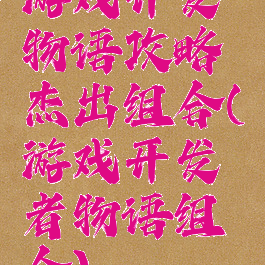 游戏开发
物语攻略
杰出组合(
游戏开发
者物语组
合)